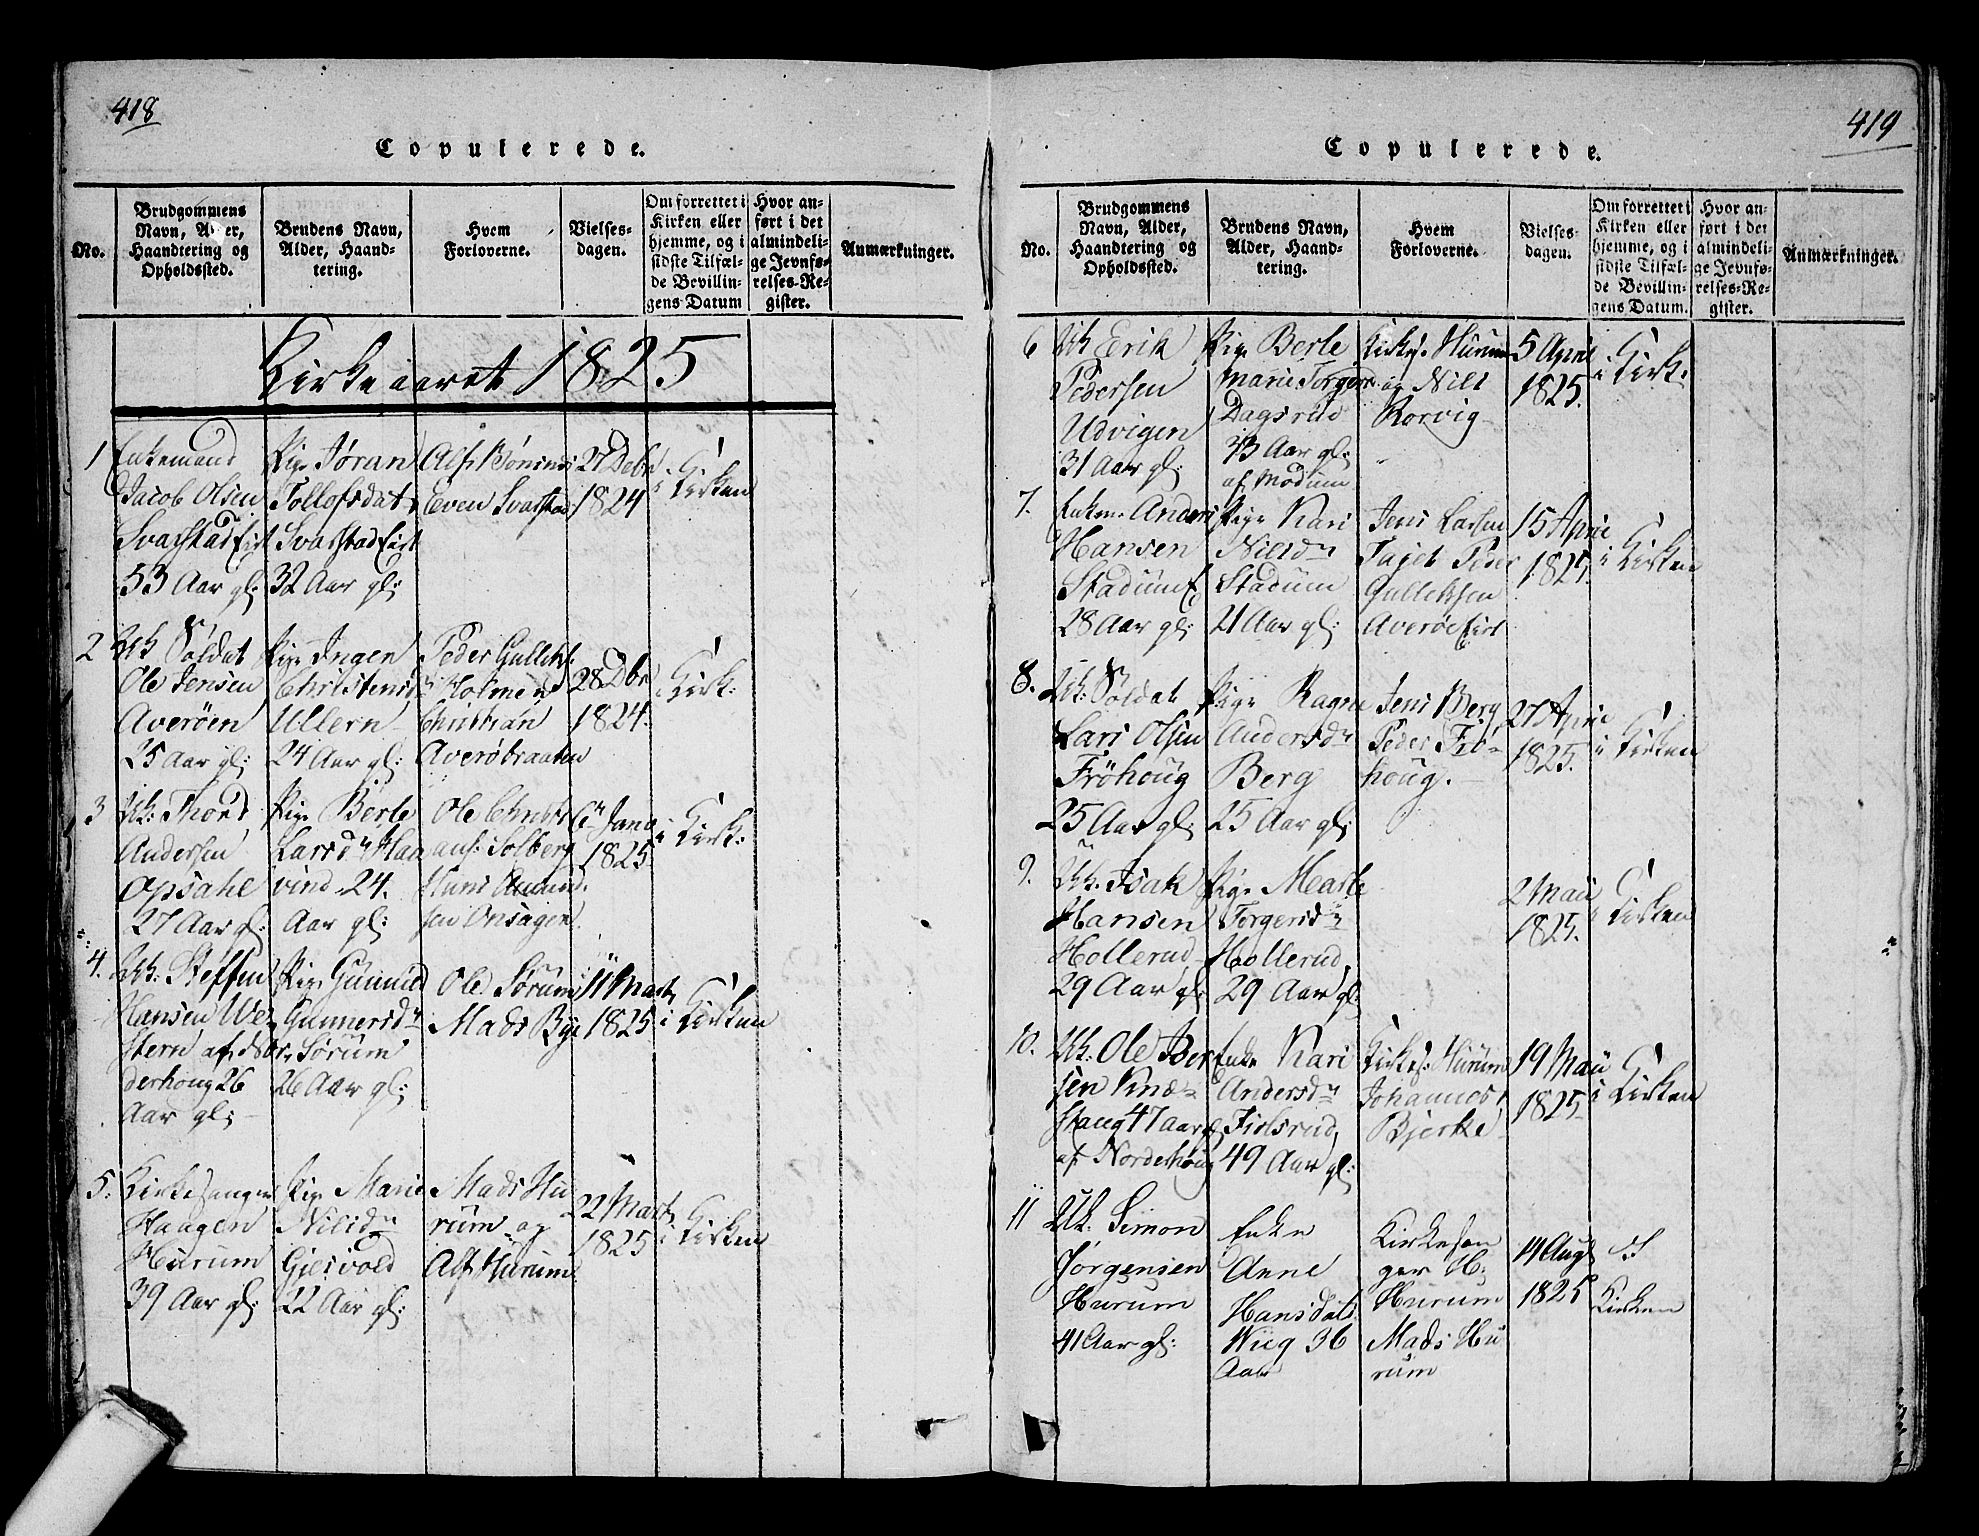 418
Copulerede.
No.
Brudgommens
Navn, Alder,
Haandtering og
Opholdssted.
Brudens Navn,
Alder, Haand-
tering.
Hvem
Forloverne.
Vielses-
dagen.
Om forrettet i
Kirken eller
hjemme, og i
sidste Tilfæl-
de Bevillin-
gens Datum
Hvor an-
ført i det
almindeli-
ge Jevnfø-
relses-Re-
gister.
Anmærkninger.
Kirkeaaret 1825
1
Enkemand
Jacob Olsen
Svarstad Eiet
53 Aar gl:
Pige Jøran
Tollefsdat.
Svarstad Eiet
32 Aar gl:
Alf
Even Svarstad
27 Debr
1824
i Kirken
2
Uk Soldat
Ole Jensen
Averøen
25 Aar gl:
Pige Ingen
Christensdr
Ullern
24 Aar gl:
Peder Gulleks.
Holmen
Christian
Averøbraaten
28 Dbr
1824.
i Kirk:
3
Uk: Thord
Andersen
Opsahl
27 Aar gl:
Pige Berte
Larsdr Haa
vind 24.
Aar gl:
Ole Christi
ans: Solberg
Hans Amund.
sen Onsagen
6 Janu
1825
i Kirk:
4.
Uk: Steffen
Hansen We-
stern af Nor-
derhoug 26
Aar gl:
Pige Gunnild
Gunnersdr
Sørum
26 Aar gl:
Ole Sørum
Mads Bye
11 Marts
1825
i Kirken
5:
Kirkesanger
Haagen
Hurum
39 Aar gl:
Pige Marie
Nilsdr
Gjesvold
22 Aar gl:
Mads Hu
rum og
Alf Hurum
22 Marts
1825
i Kirken
419
Copulerede.
No.
Brudgommens
Navn, Alder,
Haandtering og
Opholdssted.
Brudens Navn,
Alder, Haand-
tering.
Hvem
Forloverne.
Vielses-
dagen.
Om forrettet i
Kirken eller
hjemme, og i
sidste Tilfæl-
de Bevillin-
gens Datum.
Hvor an-
ført i det
almindeli-
ge Jevnfø-
relses-Re-
gister.
Anmærkninger.
6
Uk Erik
Pedersen
Udvigen
31 Aar gl:
Pige Berte
Marie Torgers
Dagsrud
Aar gl:
af Modum
Kirkes: Hurum
og Nils
Rorvig
5 April
1825.
i Kirk:
7.
Enkem: Anders
Hansen
Stadum E
28 Aar gl:
Pige Kari
Nilsdr
Stadum
21 Aar gl:
Jens Larsen
Tajet Peder
Gulleksen
Averøe Eiet
15 April
1825.
i Kirken
8.
Uk: Soldat
Lars Olsen
Frøhoug
25 Aar gl:
Pige Ragne
Andersdr
Berg
25 Aar gl:
Jens Berg
Peder Frø-
houg.
27 April
1825.
i Kirken
9.
Uk. Isak
Hansen
Hollerud
29 Aar gl:
Pige Marte
Torgersdr
Hollerud
29 Aar gl:
2 Maii
1825.
i Kirken
10.
Uk: Ole Iver
sen Knæ-
stang 47 Aar gl
af Norderhoug
Enke Kari
Andersdr
Fiolsrud
49 Aar gl:
Kirkes: Hurum
Johannes
Bjerke
19 Maii
1825
i Kirken
11
Uk. Simon
Jørgensen
Hurum
41 Aar gl:
Enke
Anne
Hansdat:
Wiig 36
Aar
Kirkesan
ger H:
Hurum
Mads Hu
rum
Aug
1825
Kirken